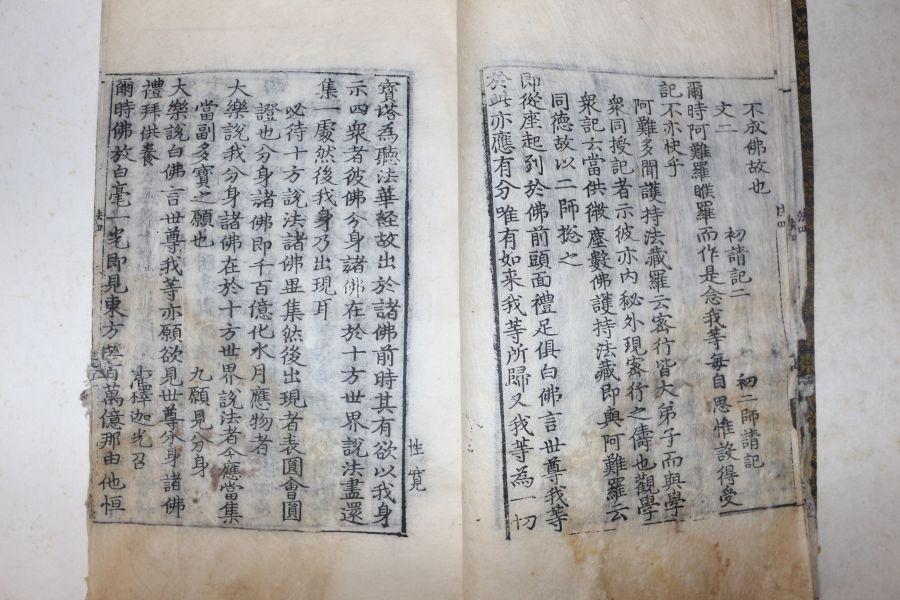 不成佛故也
文二 初請記二 初二師請記
爾時阿難羅睺羅而作是念我等每自思惟設得受
記不亦快乎
阿難多聞護持法藏羅云密行皆大弟子而與學
衆同授記者示彼亦內秘外現密行之儔也觀學
衆記云當供微塵數佛護持法藏即與阿難羅云
同德故以二師揔之
即從座起到於佛前頭面禮足俱白佛言世尊我等
於此亦應有分唯有如來我等所歸又我等為一切
性寬
寶塔為聽法華經故出於諸佛前時其有欲以我身
示四衆者彼佛分身諸佛在於十方世界說法盡還
集一處然後我身乃出現耳
必待十方說法諸佛畢集然後出現者表圓會圓
證也分身諸佛即千百億化水月應物者
大樂說我分身諸佛在於十方世界說法者今應當集
當副多寶之願也 九願見分身
大樂說白佛言世尊我等亦願欲見世尊分身諸佛
禮拜供養 釋迦光召
爾時佛放白毫一光即見東方五百萬億那由他恒
法四